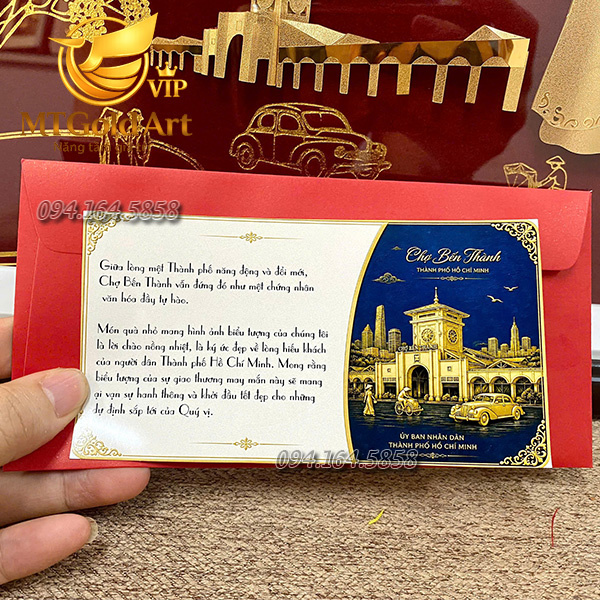 VIP
MTGold Art
Nâng tầm giá trị
094.164.5858
Giữa lòng một Thành phố năng động và đổi mới,
Chợ Bến Thành vẫn đứng đó như một chứng nhân
văn hóa đầy tự hào.
Món quà nhỏ mang hình ảnh biểu tượng của chúng tôi
là lời chào nồng nhiệt, là ký ức đẹp về lòng hiếu khách
của người dân Thành phố Hồ Chí Minh. Mong rằng
biểu tượng của sự giao thương may mắn này sẽ mang
lại vạn sự hanh thông và khởi đầu tốt đẹp cho những
dự định sắp tới của Quý vị.
Chợ Bến Thành
THÀNH PHỐ HỒ CHÍ MINH
ỦY BAN NHÂN DÂN
THÀNH PHỐ HỒ CHÍ MINH
094.164.5858